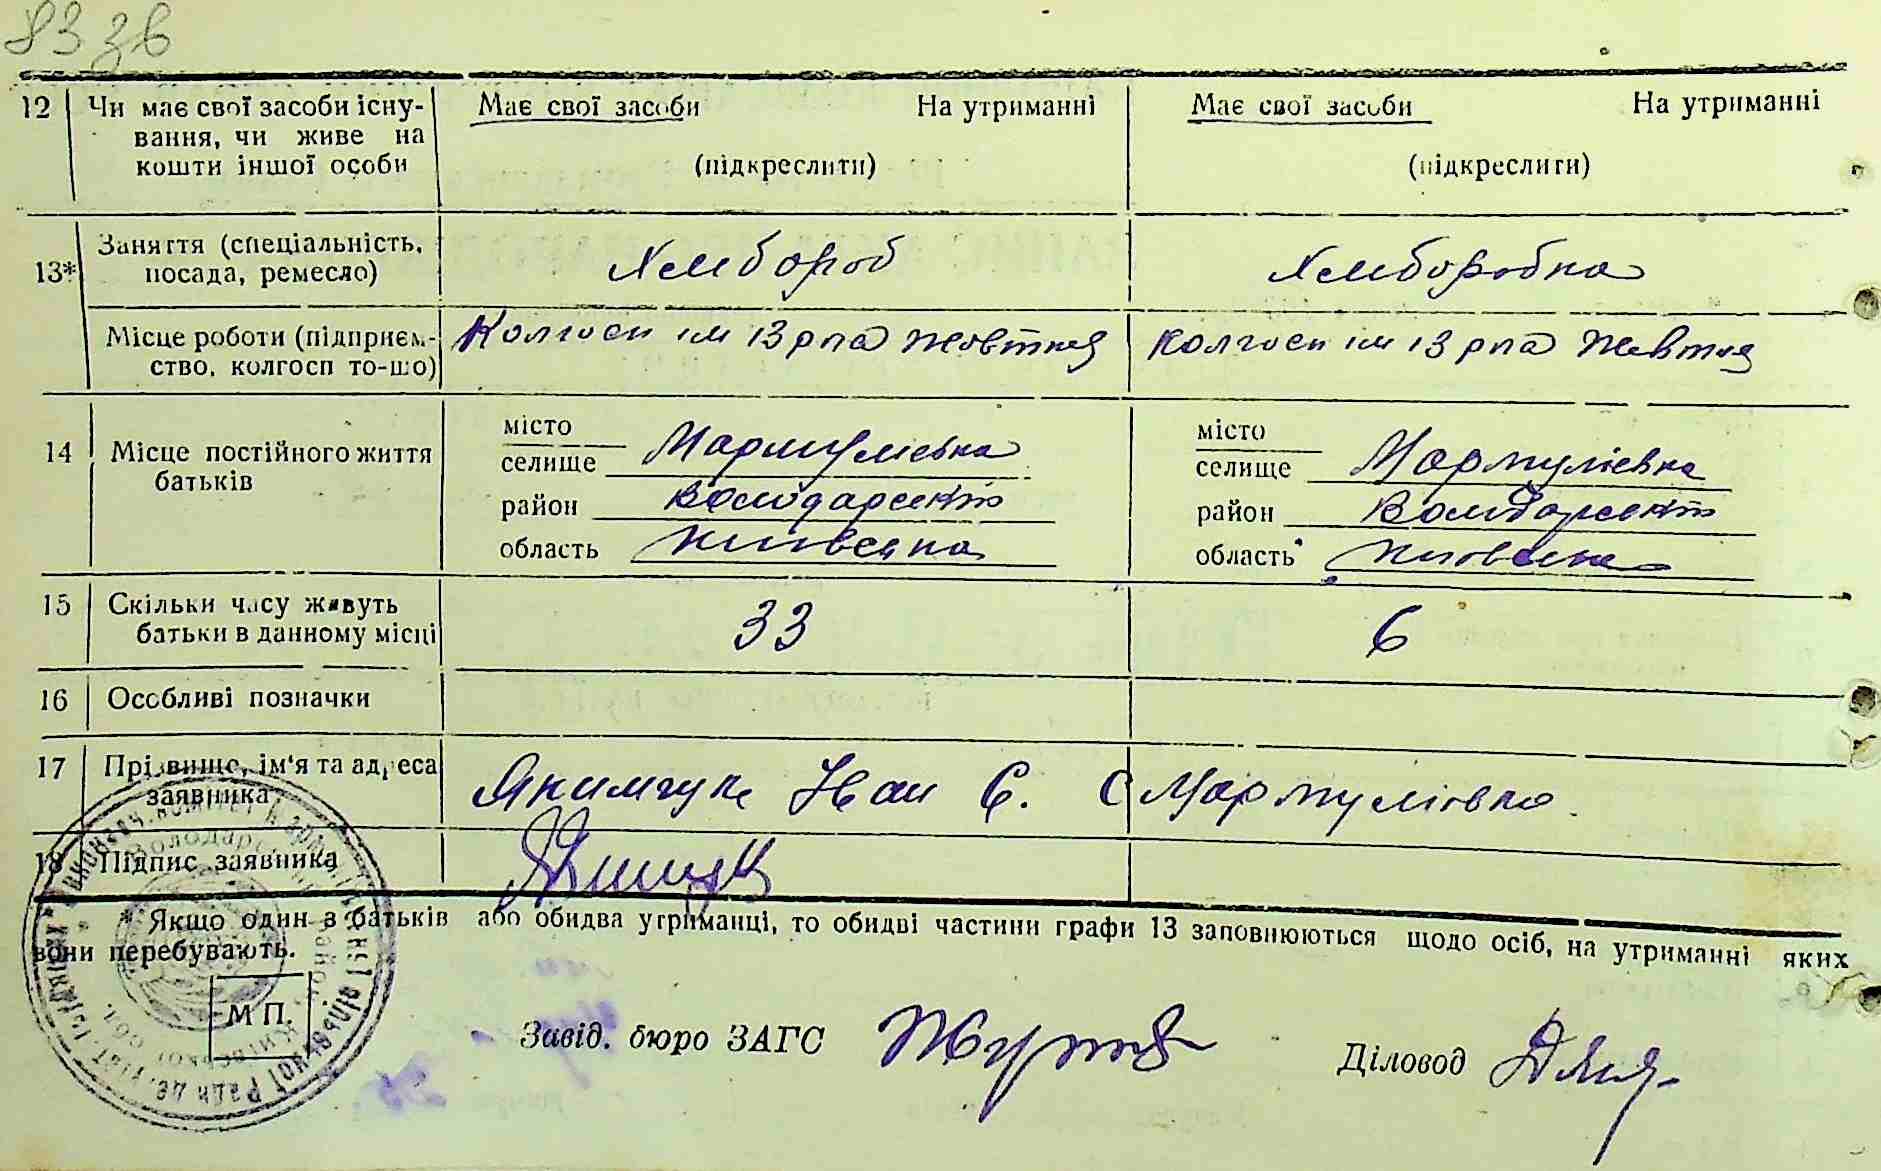 83 зв
12 Чи має свої засоби існу- Має свої засоби На утриманні Має свої засоби На утриманні
вання, чи живе на
кошти іншої особи (підкреслити) (підкреслити)
13* Заняття (спеціальність, Хлібороб Хліборобка
посада, ремесло)
Місце роботи (підприєм- Колгосп ім 13 р жовтня Колгосп ім 13 р жовтня
ство, колгосп то-що)
14 Місце постійного життя місто місто
батьків селище Мармуліївка селище Мармуліївка
район Володарський район Володарський
область Київська область Київська
15 Скільки часу живуть 33 6
батьки в данному місці
16 Особливі позначки
17 Прізвище, ім'я та адреса Якимчук Іван Є. С Мармуліївка
заявника
18 Підпис заявника
* Якщо один з батьків або обидва утриманці, то обидві частини графи 13 заповнюються щодо осіб, на утриманні яких
вони перебувають.
М П.
Завід. бюро ЗАГС Діловод